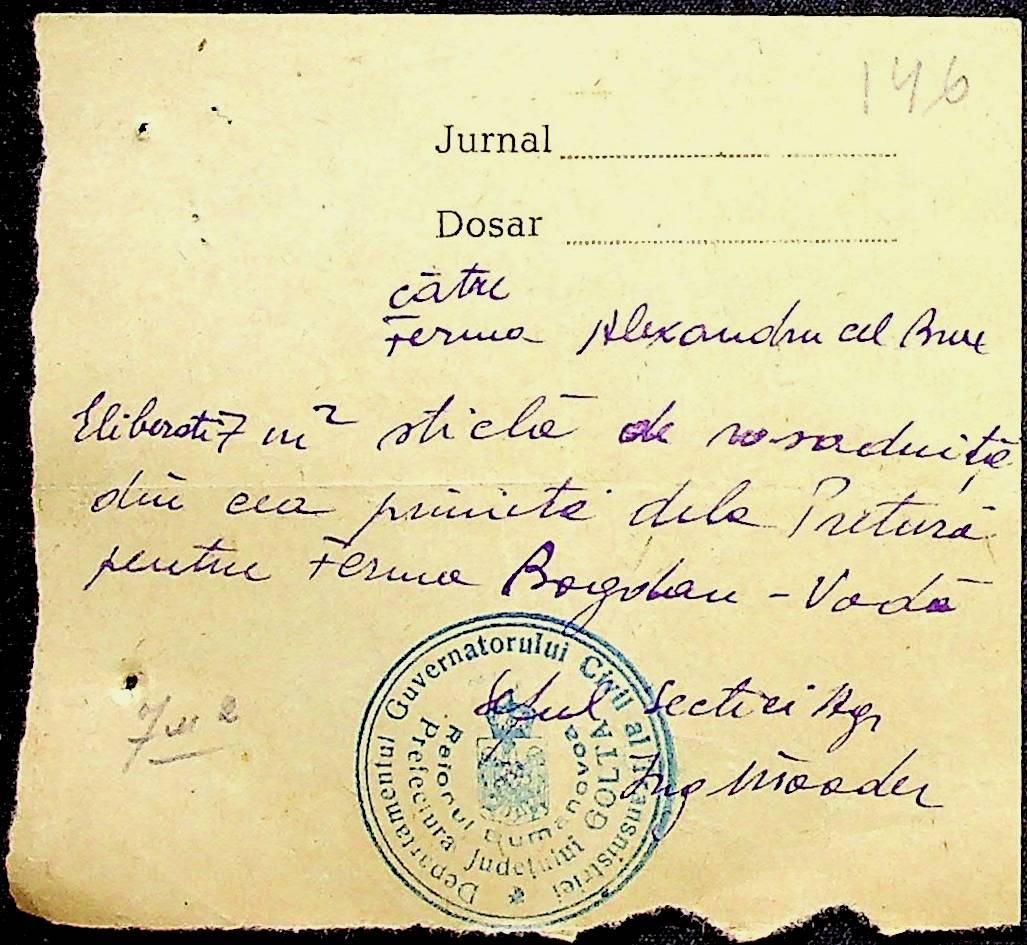 146
Jurnal
Dosar
către
Ferma Alexandru cel Bun
Eliberati 7 m² sticlă de rasadniță
din cea primită dela Pretură
pentru Ferma Bogdan - Vodă
Șeful Sectiei Agr
Ing
7 m²
Departamentul Guvernatorului Civil al Transnistriei
Prefectura Județului GOLTA
Raionul Dumanovca